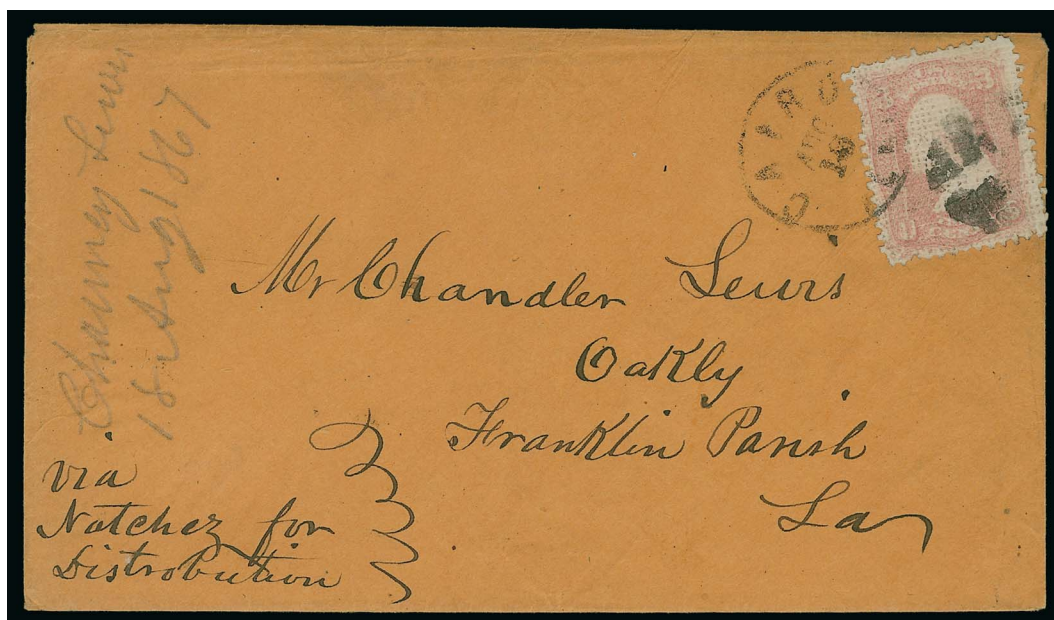 Chauncey Lewis
18 Aug 1867
CAIRO
AUG
18
Mr Chandler Lewis
Oakly
Franklin Parish
La
via
Natchez for
Distribution